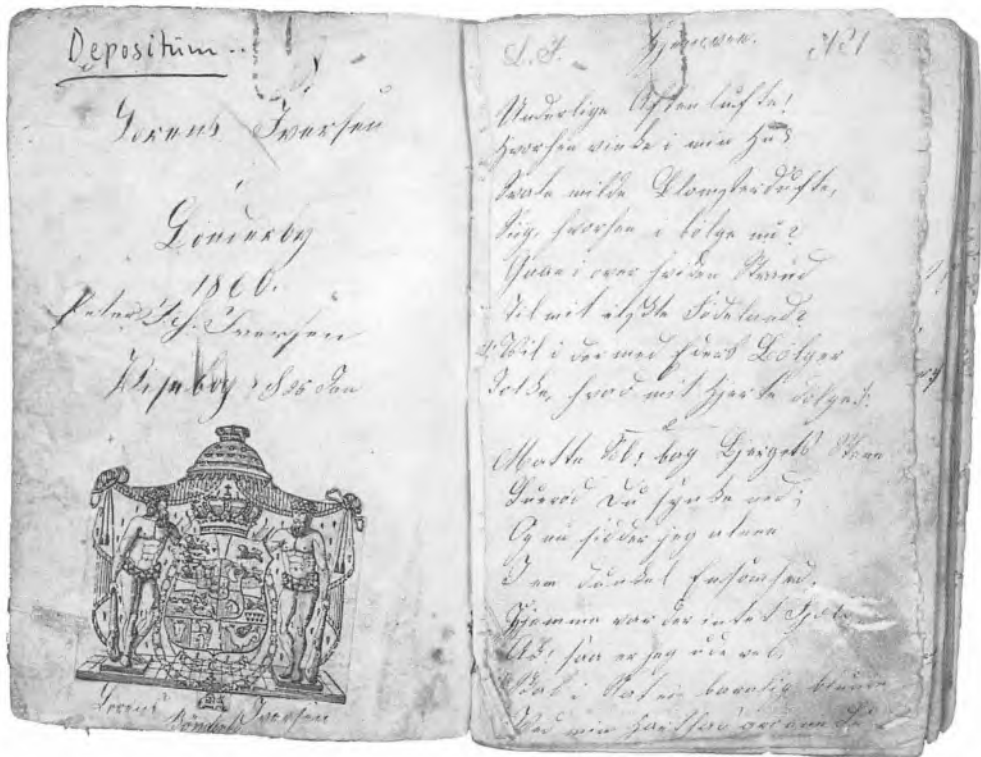 Depositum..
Lorens Iversen
Lönderby
1860.
Peter Iversen
Lorens Iversen
L. I. Hjemveen. No 1
Underlige Aftenlufte!
Hvorhen vinke i min Hu?
Svale milde Blomsterdufte,
Siig, hvorhen i bölge nu?
Gaae i over hviden Strand
Til mit elskte Födeland?
Vil i der med Eders Bölger
Tolke, hvad mit Hjerte dölger?
2
Matte Sol! bag Bjergets Steen
Luerød Du synke ned;
Og nu sidder jeg alene
I en dunkel Eensomhed.
Hjemme var der intet Fjeld
Ak! saa er jeg ude vel,
Skal i Nat ei barnlig blunde
Ved min